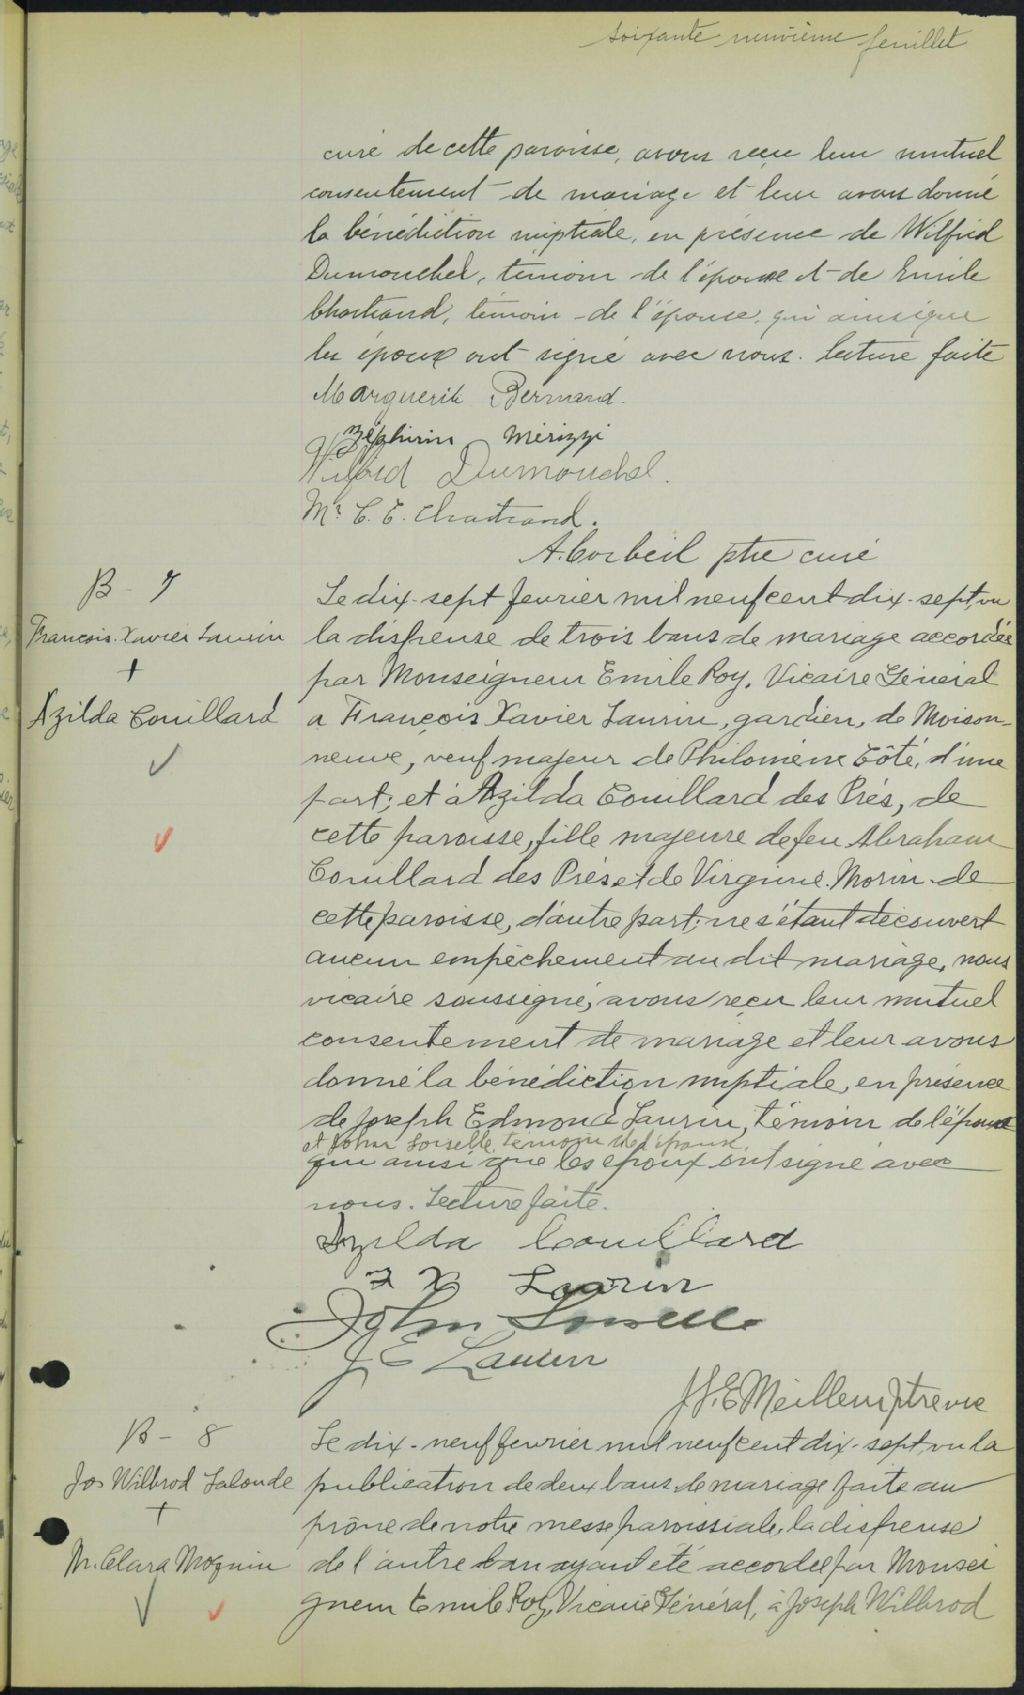 soixante neuvième feuillet
curé de cette paroisse, avons reçu leur mutuel
consentement de mariage et leur avons donné
la bénédiction nuptiale, en présence de Wilfrid
Dumouchel, témoin de l'époux et de Emile
Chartrand, témoin de l'épouse, qui ainsi que
les époux ont signé avec nous. lecture faite
Marguerite Bermand.
Zéphirin Mérizzi
Wilfrid Dumouchel.
Mr. C. E. Chartrand.
A. Corbeil ptre curé
B - 7
François-Xavier Laurin
+
Azilda Couillard
Le dix-sept fevrier mil neuf cent dix-sept vu
la dispense de trois bans de mariage accordée
par Monseigneur Emile Roy, Vicaire Général
a François Xavier Laurin, gardien, de Maison-
neuve, veuf majeur de Philomène Côté, d'une
part; et à Azilda Couillard des Prés, de
cette paroisse, fille majeure de feu Abraham
Couillard des Prés et de Virginie Morin de
cette paroisse, d'autre part; ne s'étant découvert
aucun empêchement au dit mariage, nous
vicaire soussigné, avons reçu leur mutuel
consentement de mariage et leur avons
donné la bénédiction nuptiale, en présence
de Joseph Edmond Laurin, témoin de l'épouse
et John Loiselle témoin de l'époux
qui ainsi que les époux ont signé avec
nous. Lecture faite.
Azilda Couillard
F X Laurin
John Loiselle
J E Laurin
J.S.E Meilleur ptre vic
B - 8
Jos Wilbrod Lalonde
+
M. Clara Moquin
Le dix-neuf fevrier mil neuf cent dix-sept vu la
publication de deux bans de mariage faite au
prône de notre messe paroissiale, la dispense
de l'autre ban ayant été accordée par Monsei
gneur Emile Roy, Vicaire Général, à Joseph Wilbrod